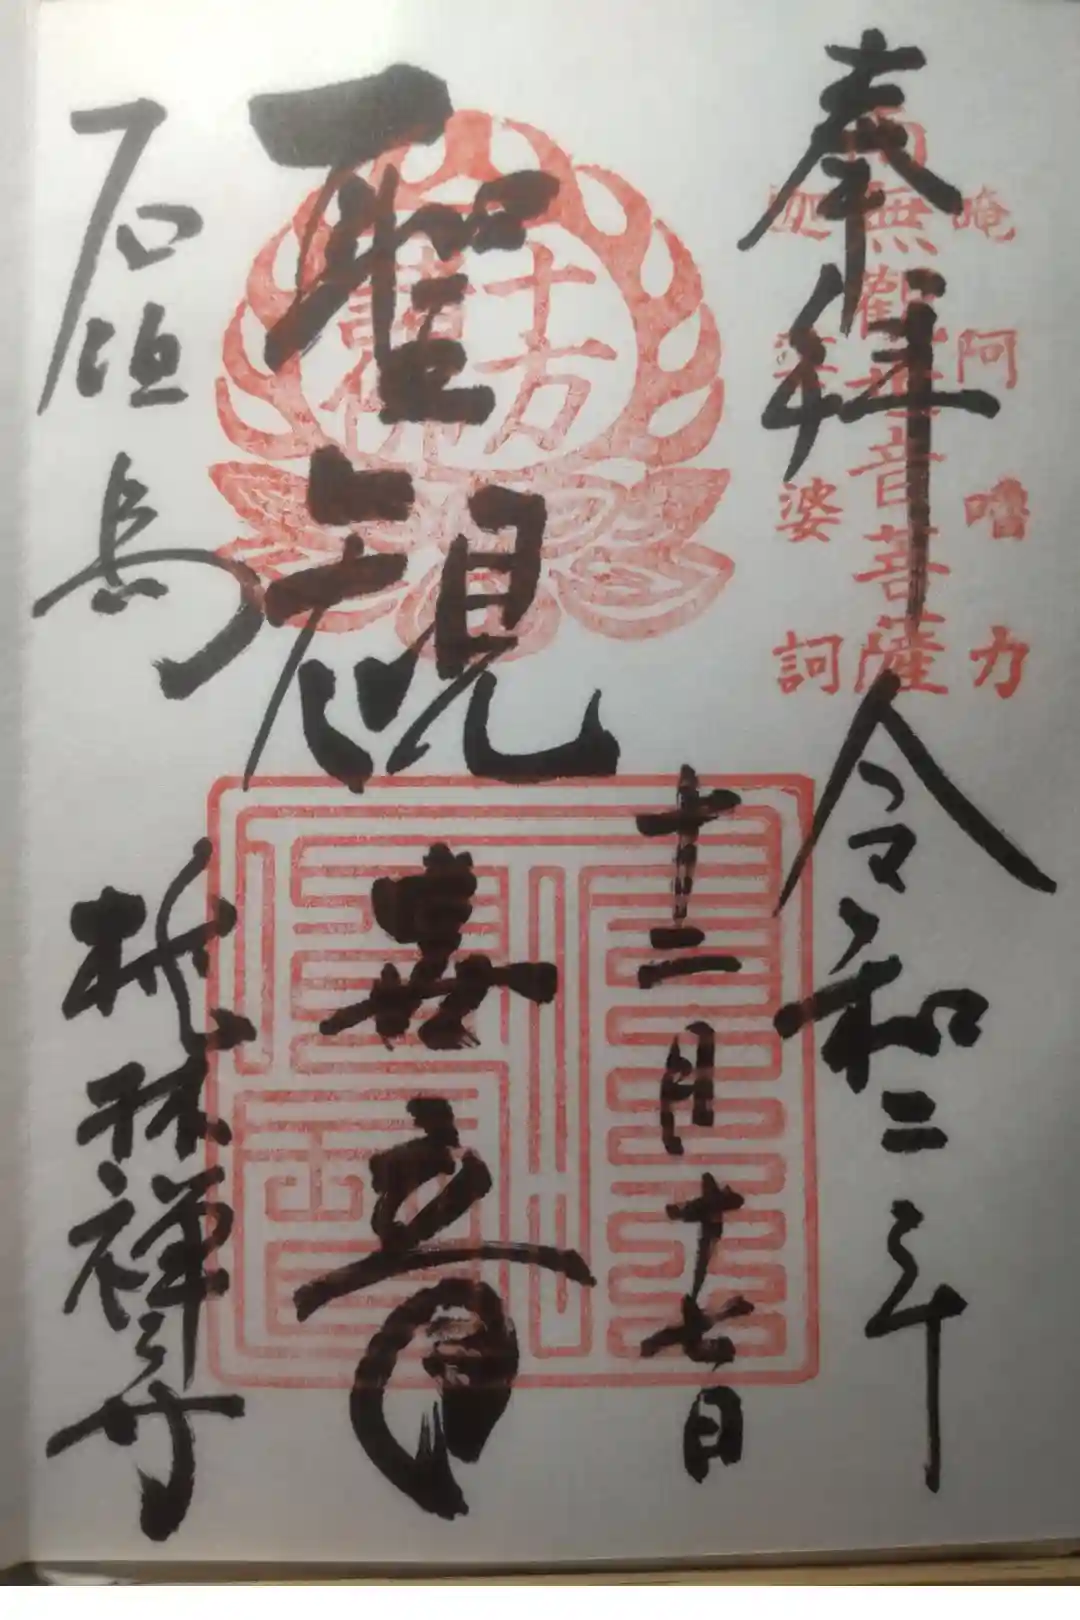 唵阿嚕力
南無觀世音菩薩
迦娑婆訶
奉拝 令和二年
十二月十七日
十方
諸佛
聖観世音
石垣島 桃林禅寺